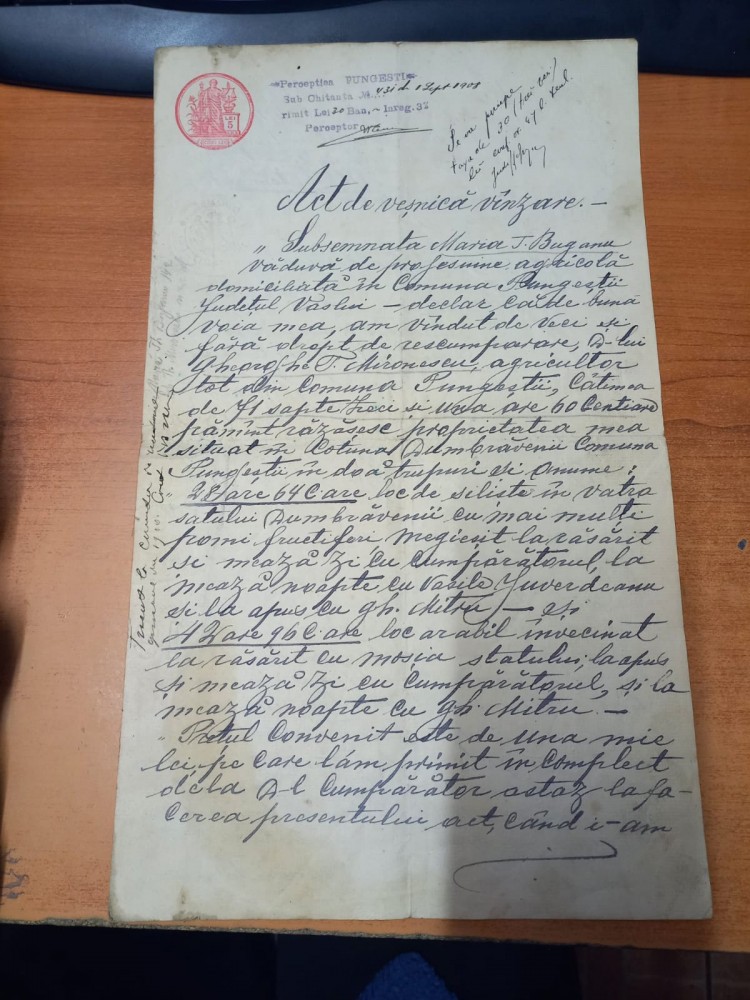 Perceptiea PUNGESTI
Sub Chitanta №. 431 din 1 Sept 1908
rimit Lei 20 Bani, – Inreg. 3%
Perceptor
LEI 5
Se va percepe
taxa de 30 (trei zeci)
lei conf. 47 l. timb.
Act de veșnică vînzare. –
„ Subsemnata Maria T. Buganu
văduvă de profesiune agricolă
domiciliată în Comuna Pungeștii
Județul Vaslui – declar că de bună
voia mea, am vîndut de veci și
fără drept de rescumparare, D-lui
Gheorghe T. Mironescu, agricultor
tot din Comuna Pungeștii, Câtimea
de 71 șapte zeci și una are 60 Centiare
pămînt răzășesc proprietatea mea
situat în Cotuna Dumbrăvenii Comuna
Pungeștii în două trupuri și anume:
„ 28 are 64 C. are loc de siliște în vatra
satului Dumbrăvenii cu mai mulți
pomi fructiferi megieșit la răsărit
și mează zi cu Cumpărătorul, la
mează noapte cu Vasile Iuverdeanu
și la apus cu gh. Mitru – și
42 are 96 C. are loc arabil învecinat
la răsărit cu moșia statului; la apus
și mează zi cu Cumpărătorul, și la
mează noapte cu gh. Mitru. –
„ Prețul Convenit este de una mie
lei, pe care l'am primit în complect
dela D-l Cumpărător astăz la fa-
cerea presentului act, când i-am